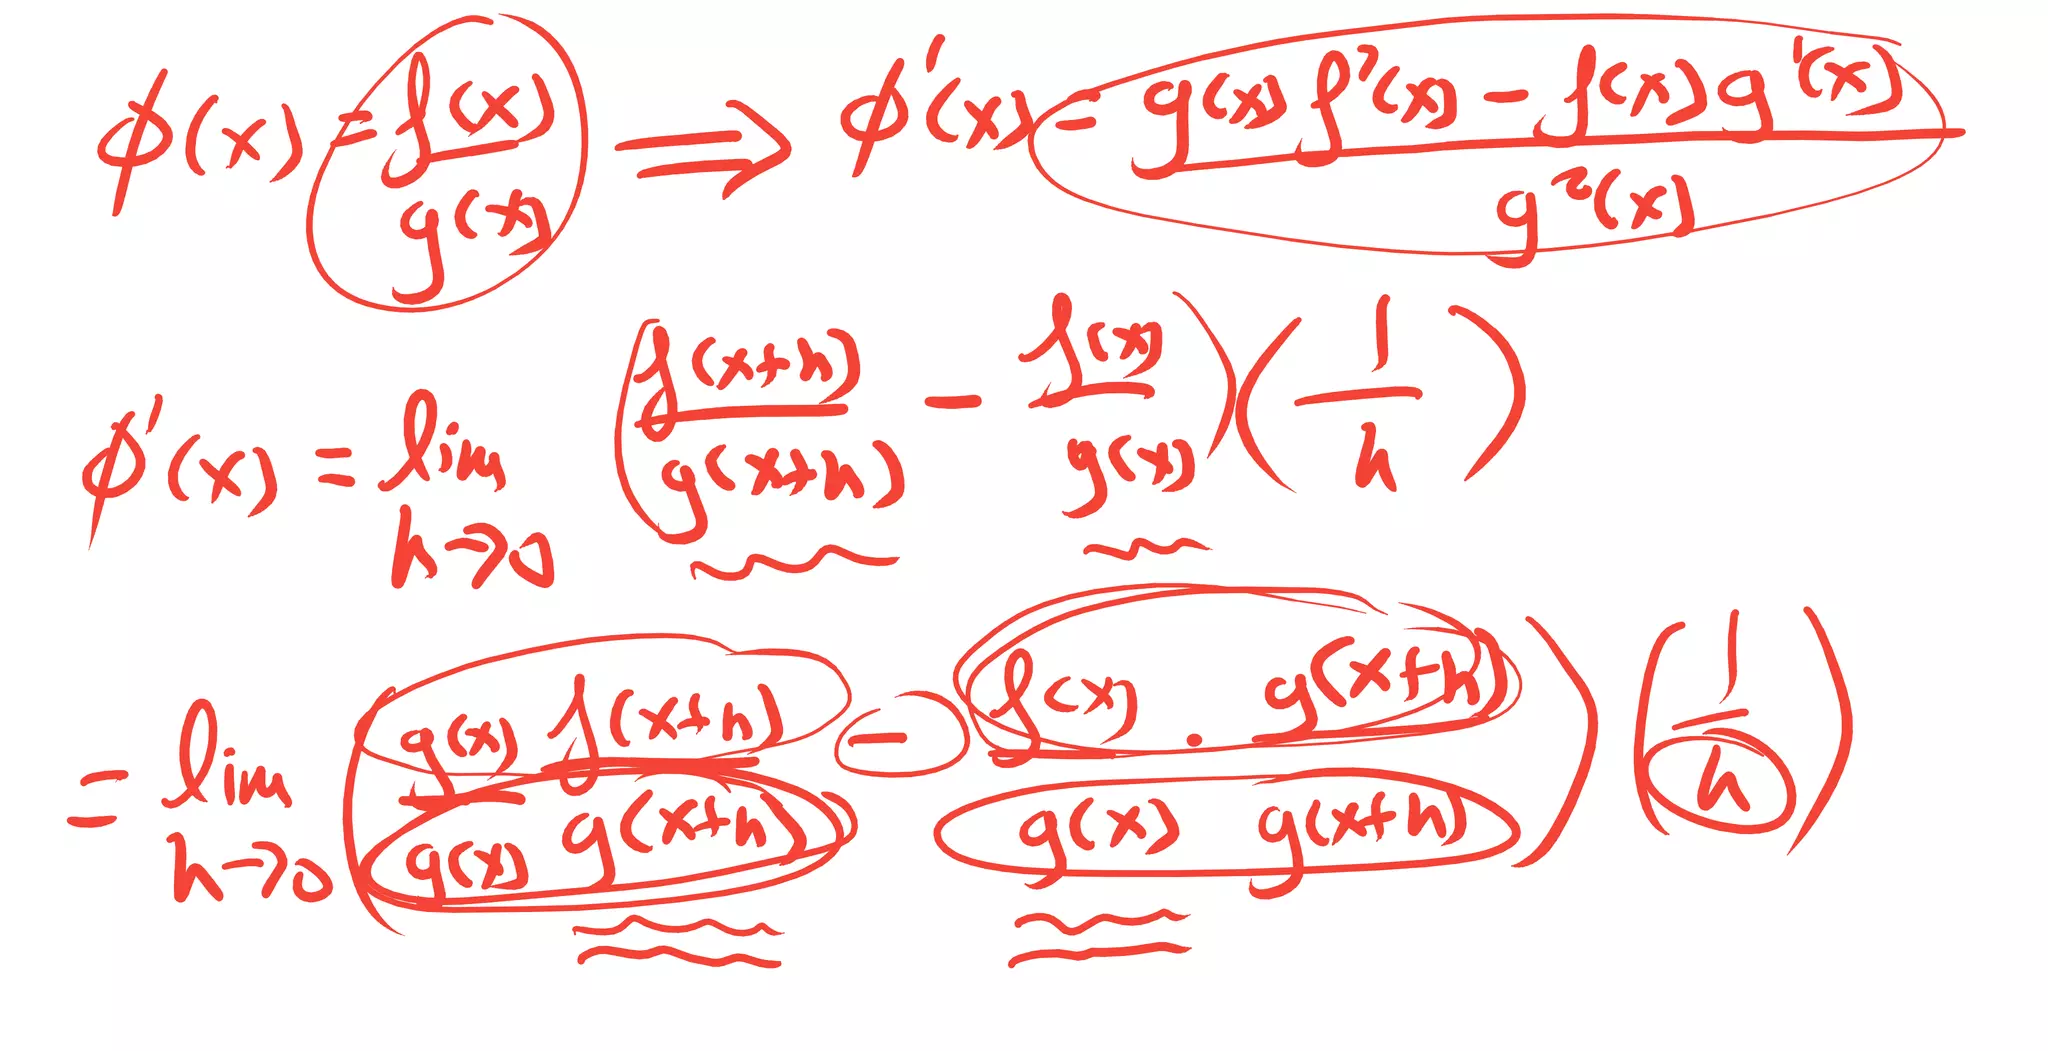 ϕ(x) = f(x)/g(x) ⟹ ϕ'(x) = (g(x) f'(x) − f(x) g'(x))/g²(x)
ϕ'(x) = lim h→0 (f(x+h)/g(x+h) − f(x)/g(x)) (1/h)
= lim h→0 (g(x) f(x+h)/g(x) g(x+h) − f(x) · g(x+h)/g(x) g(x+h)) (1/h)